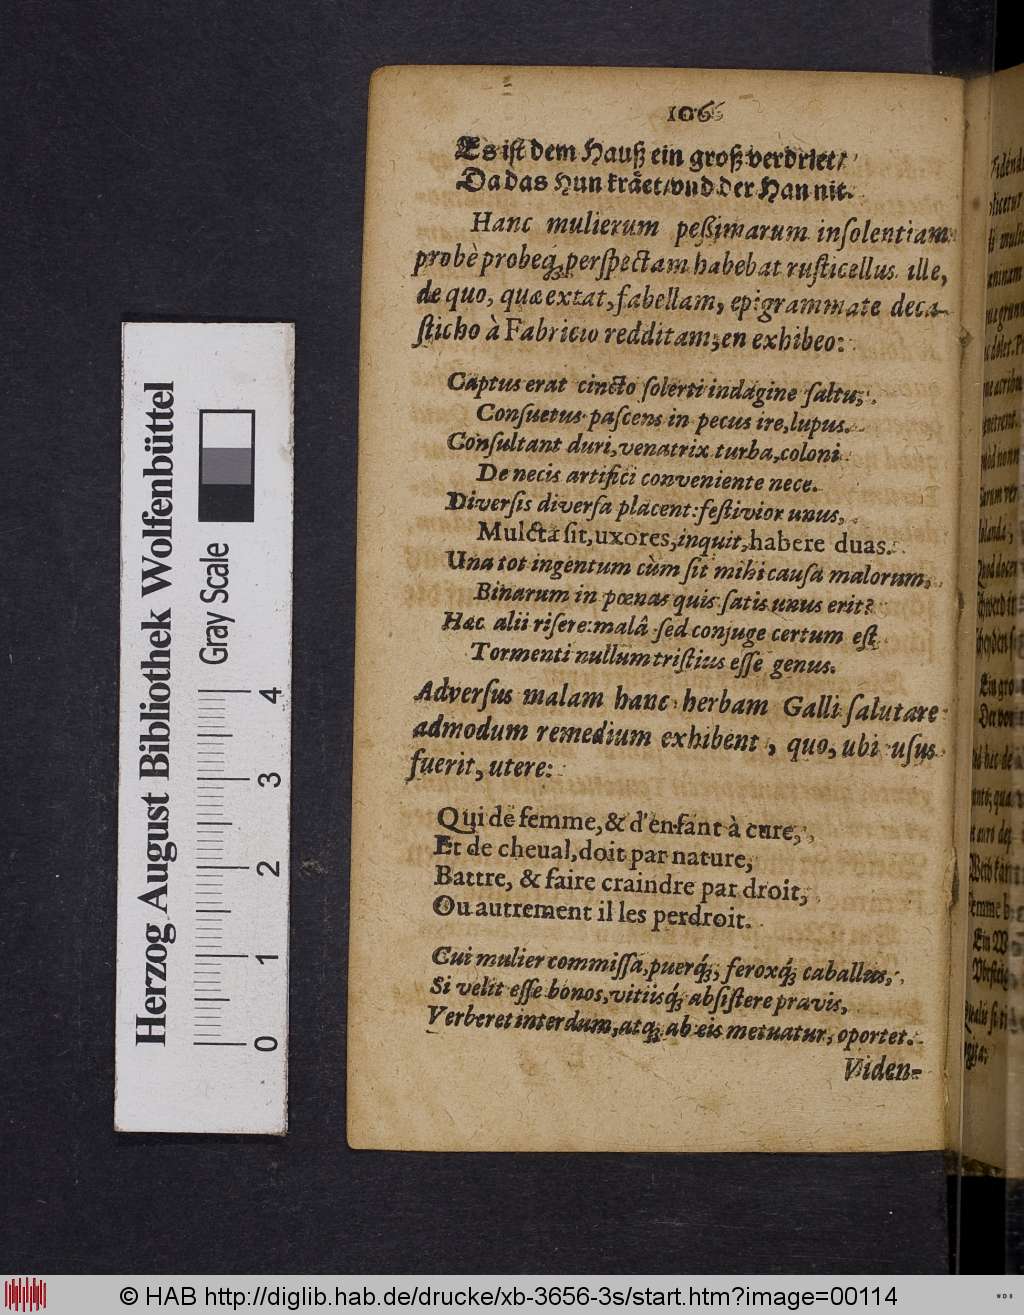 106
Es ist dem Hauß ein groß verdriet/
Da das Hun kräet/vnd der Han nit.
Hanc mulierum peßimarum insolentiam
probè probeq́; perspectam habebat rusticellus ille,
de quo, quæ extat, fabellam, epigrammate deca-
sticho à Fabricio redditam; en exhibeo:
Captus erat cincto solerti indagine saltu,
Consuetus pascens in pecus ire, lupus.
Consultant duri, venatrix turba, coloni
De necis artifici conveniente nece.
Diversis diversa placent: festivior unus,
Mulcta sit, uxores, inquit, habere duas.
Una tot ingentum cùm sit mihi causa malorum,
Binarum in pœnas quis satis unus erit?
Hæc alii risere: malâ sed conjuge certum est
Tormenti nullum tristius esse genus.
Adversus malam hanc herbam Galli salutare
admodum remedium exhibent, quo, ubi usus
fuerit, utere:
Qui de femme, & d'enfant à cure,
Et de cheual, doit par nature,
Battre, & faire craindre par droit,
Ou autrement il les perdroit.
Cui mulier commissa, puerq́;, feroxq́; caballus,
Si velit esse bonos, vitiisq́; absistere pravis,
Verberet interdum, atq; ab eis metuatur, oportet.
Viden-
Herzog August Bibliothek Wolfenbüttel
Gray Scale
0 1 2 3 4
© HAB http://diglib.hab.de/drucke/xb-3656-3s/start.htm?image=00114